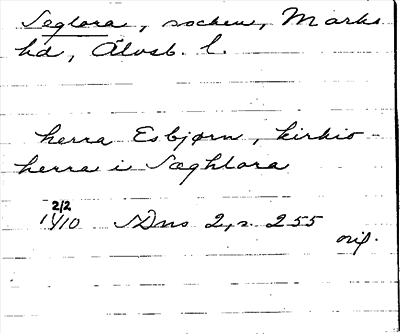 Seglora, socken, Marks
hd, Älvsb. l.
herra Esbjørn, kirkio-
herra i Sæghlora
2/2
1410 SDns 2, s. 255
orig.